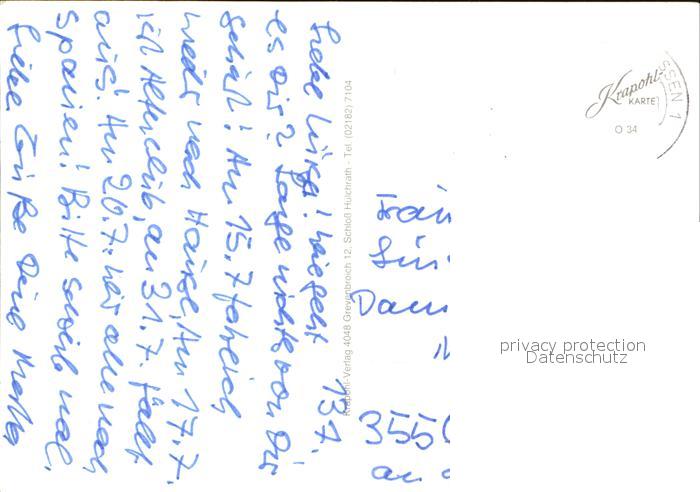 13.7.
Liebe Luise! Wie geht
es Dir? Lange nichts von Dir
gehört! Am 15.7 fahre ich
wieder nach Hause, Am 17.7.
ich am 31.7. fällt
aus! Am 20.7. wir alle nach
Spanien! Bitte schreib mal.
Liebe Grüße Deine
Krapohl-Verlag 4048 Grevenbroich 12, Schloß Hülchrath - Tel. (02182) 7104
Krapohl-
KARTE
O 34
SSEN 1
Fräu
Dam
355
an d
privacy protection
Datenschutz